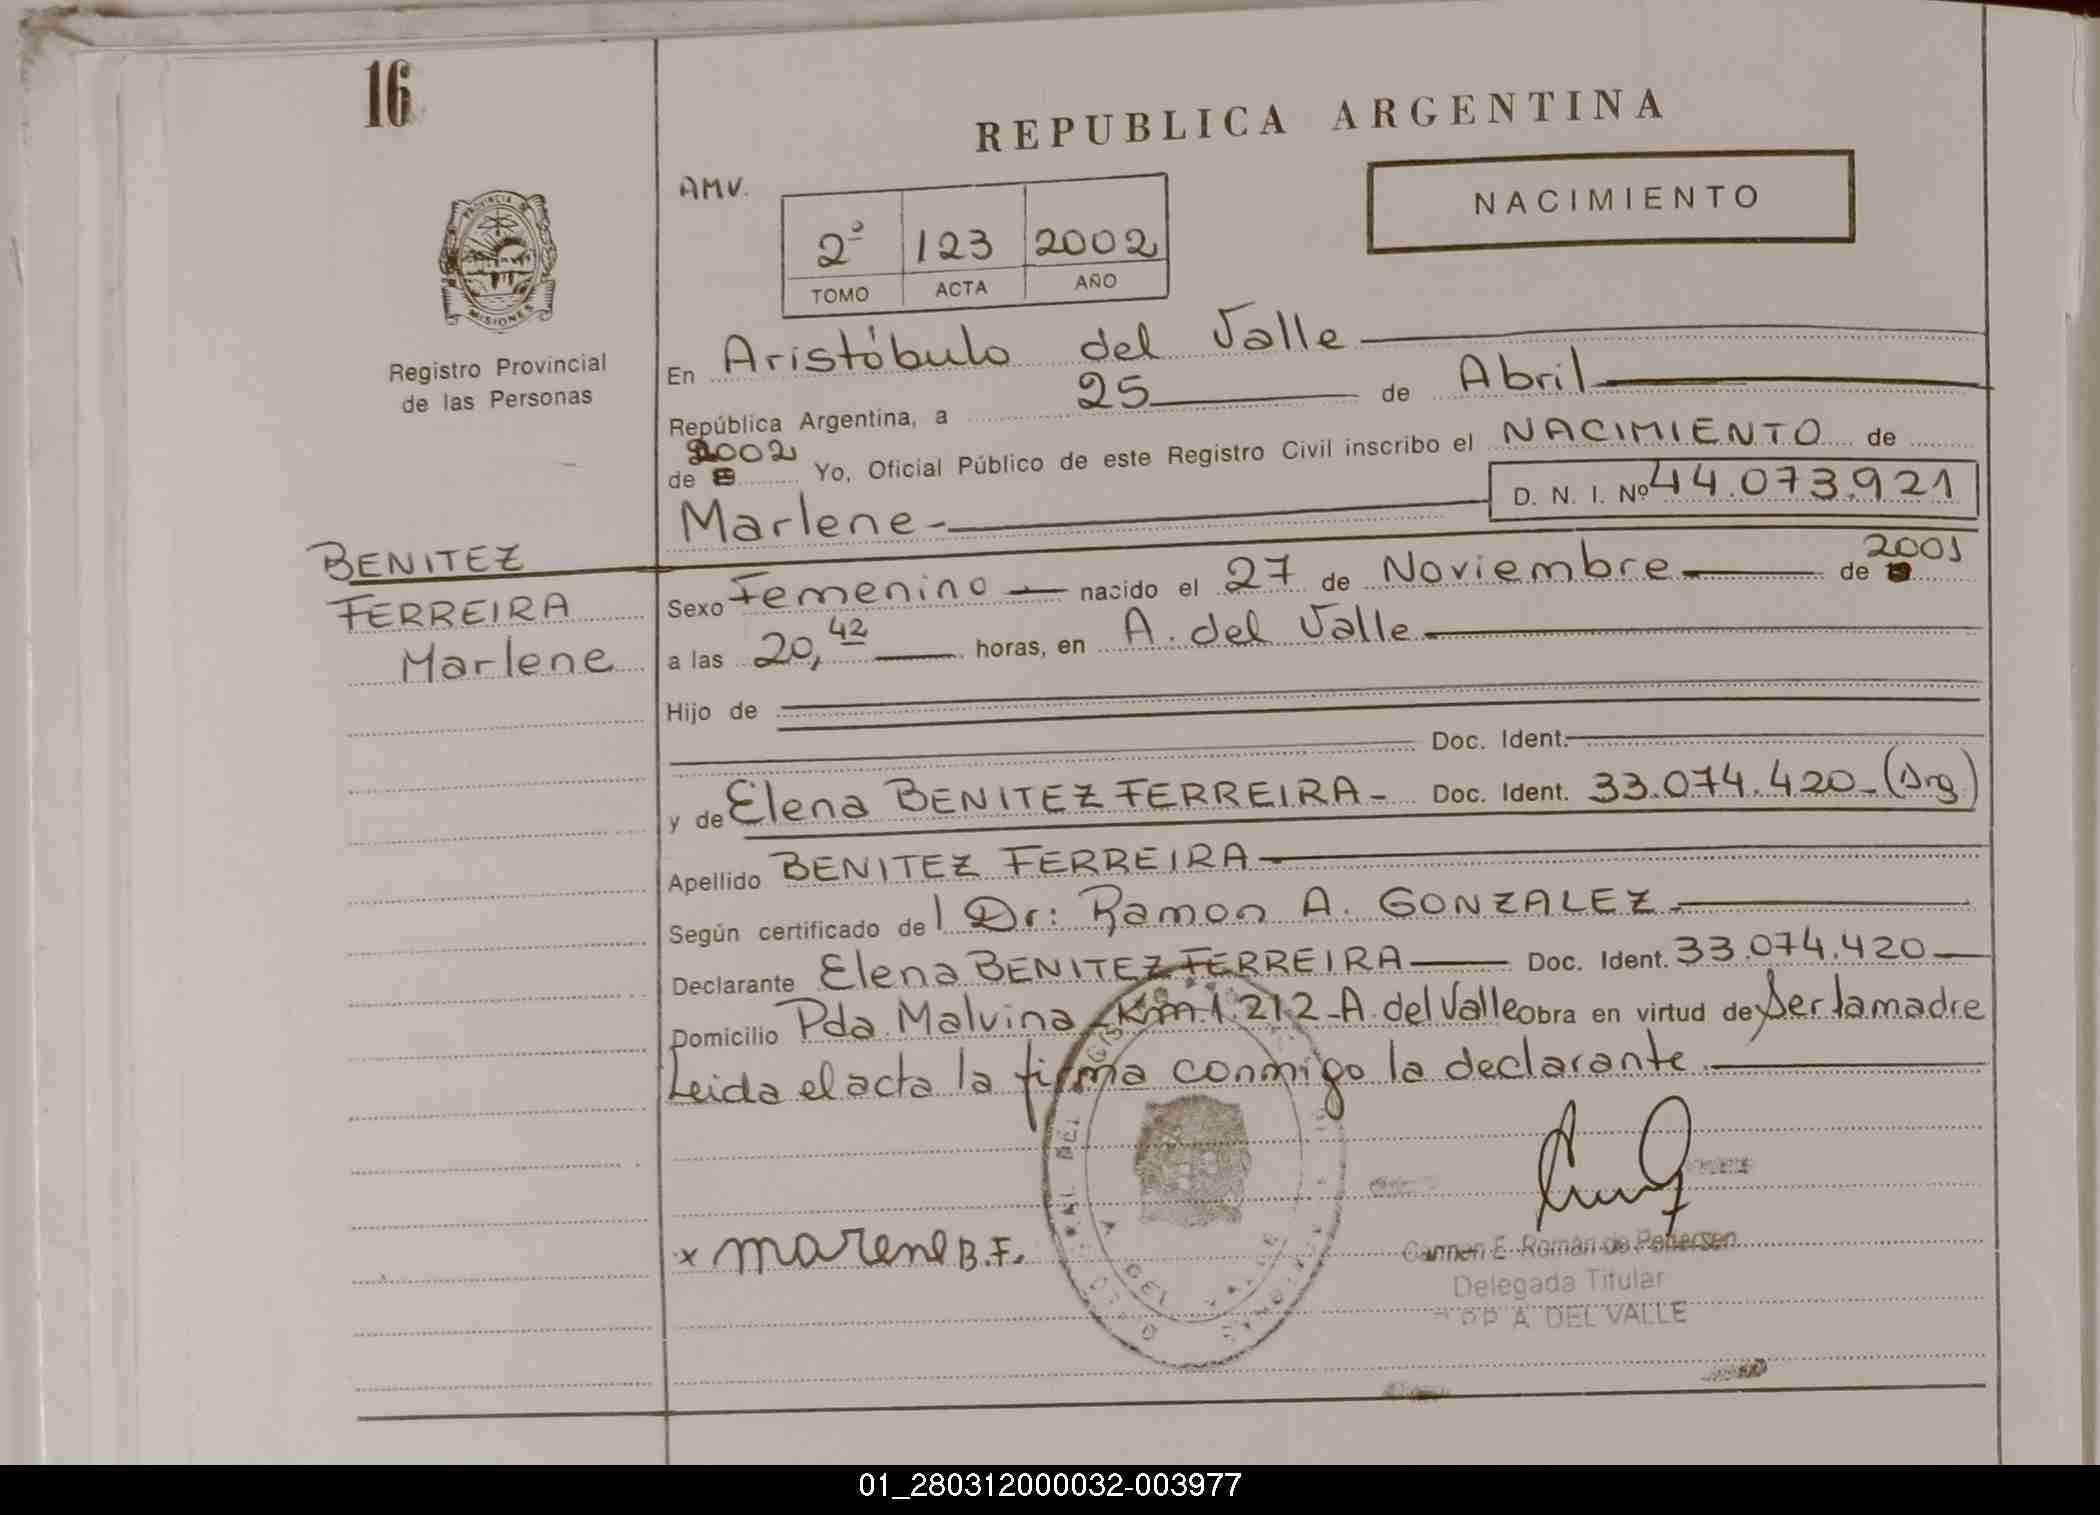 16
REPUBLICA ARGENTINA
AMV.
NACIMIENTO
2º 123 2002
TOMO ACTA AÑO
PROVINCIA DE
MISIONES
Registro Provincial
de las Personas
En Aristóbulo del Valle
República Argentina, a 25 de Abril
de 2002 Yo, Oficial Público de este Registro Civil inscribo el NACIMIENTO de
D. N. I. Nº 44.073.921
Marlene-
BENITEZ
FERREIRA
Marlene
Sexo Femenino nacido el 27 de Noviembre de 2001
a las 20,42 horas, en A. del Valle
Hijo de
Doc. Ident.
y de Elena BENITEZ FERREIRA- Doc. Ident. 33.074.420-(Arg)
Apellido BENITEZ FERREIRA
Según certificado del Dr: Ramon A. GONZALEZ
Declarante Elena BENITEZ FERREIRA Doc. Ident. 33.074.420
Domicilio Pda. Malvina-Km 1.212-A. del Valle Obra en virtud de Ser la madre
Leida el acta la firma conmigo la declarante
x marene B.F.
Carmen E. Román de Pedersen
Delegada Titular
A DEL VALLE
01_280312000032-003977